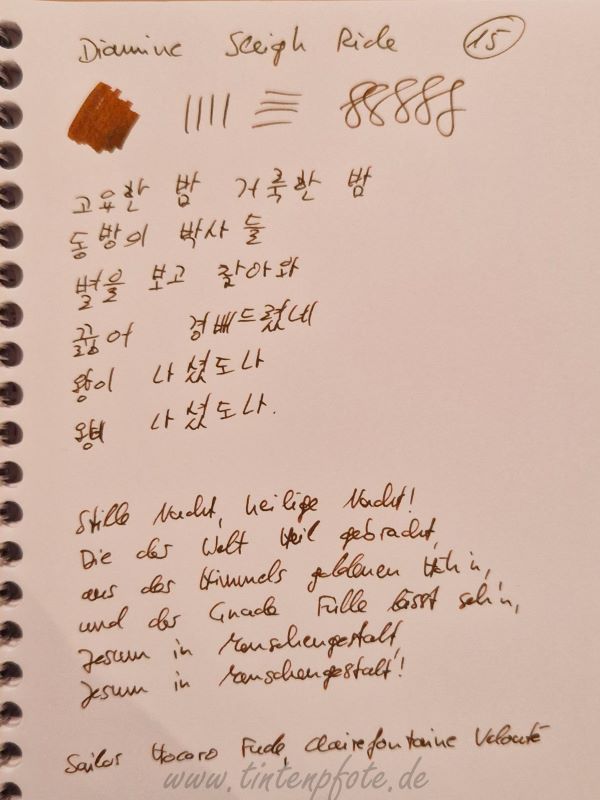 Diamine Sleigh Ride 15
고유한 밤 거룩한 밤
동방의 박사 들
별을 보고 찰아와
꿇어 경배드렸네
왕이 나 셨도나
왕이 나 셨도나.
Stille Nacht, heilige Nacht!
Die der Welt Heil gebracht,
aus des Himmels goldenen Höh'n,
und der Gnade Fülle lässt seh'n,
Jesum in Menschengestalt,
Jesum in Menschengestalt!
Sailor Hocoro Fude, Clairefontaine Velouté
www.tintenpfote.de